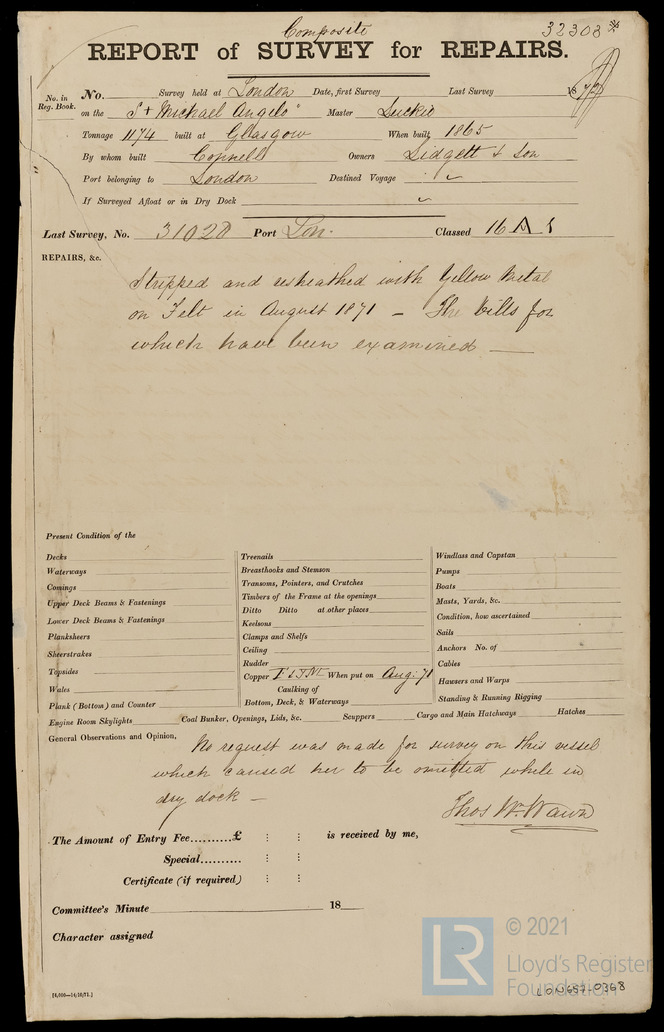 Composite 32308
REPORT of SURVEY for REPAIRS.
No. in Reg. Book. No. Survey held at London Date, first Survey Last Survey 1872
on the St Michael Angelo" Master Luckie
Tonnage 1174 built at Glasgow When built 1865
By whom built Connell Owners Lidgett & Son
Port belonging to London Destined Voyage
If Surveyed Afloat or in Dry Dock
Last Survey, No. 31028 Port Lon. Classed 16 A 1
REPAIRS, &c.
Stripped and resheathed with Yellow Metal
on Felt in August 1871 – The bills for
which have been examined —
Present Condition of the
Decks
Waterways
Comings
Upper Deck Beams & Fastenings
Lower Deck Beams & Fastenings
Planksheers
Sheerstrakes
Topsides
Wales
Plank (Bottom) and Counter
Treenails
Breasthooks and Stemson
Transoms, Pointers, and Crutches
Timbers of the Frame at the openings
Ditto Ditto at other places
Keelsons
Clamps and Shelfs
Ceiling
Rudder
Copper F & YM When put on Aug: 71
Caulking of
Bottom, Deck, & Waterways
Windlass and Capstan
Pumps
Boats
Masts, Yards, &c.
Condition, how ascertained
Sails
Anchors No. of
Cables
Hawsers and Warps
Standing & Running Rigging
Engine Room Skylights Coal Bunker, Openings, Lids, &c. Scuppers Cargo and Main Hatchways Hatches
General Observations and Opinion,
No request was made for survey on this vessel
which caused her to be omitted while in
dry dock –
Thos Wm Wawn
The Amount of Entry Fee..........£ : : is received by me,
Special.......... : :
Certificate (if required) : :
Committee's Minute 18
Character assigned
[4,000—14/10/71.]
LR © 2021
Lloyd's Register
Foundation
LON657-0368